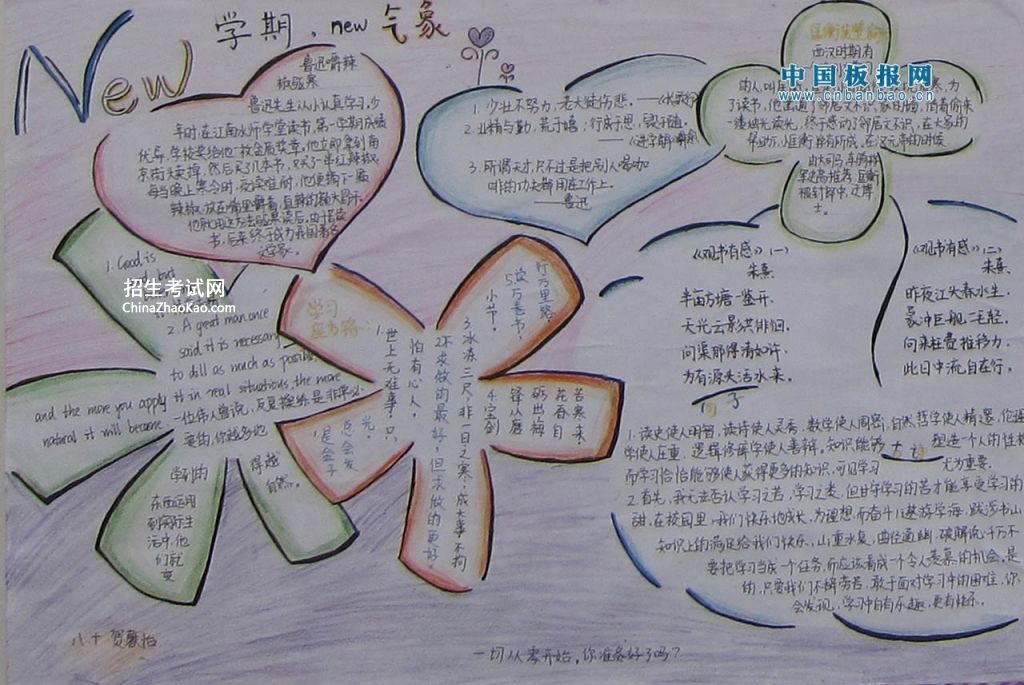 New 学期，new 气象
鲁迅嚼辣
椒驱寒
鲁迅先生从小认真学习，少
年时，在江南水师学堂读书，第一学期成绩
优异，学校奖给他一枚金质奖章。他立即拿到南
京街头卖掉，然后买了几本书，又买了一串红辣椒
每当晚上寒冷时，夜读难耐，他便摘下一颗
辣椒，放在嘴里嚼着，直辣的额头冒汗。
他就用这种办法驱寒坚持读书
书，后来终于成为我国著名
文学家。
1. 少壮不努力，老大徒伤悲。
2. 业精于勤，荒于嬉；行成于思，毁于随。
3. 所谓天才，只不过是把别人喝咖
啡的功夫都用在工作上。
——鲁迅
匡衡凿壁
西汉时期有
中国板报网
www.cnbanbao.cn
一缕烛光读光，终于感动了邻居文不识，在大家的
帮助下，小匡衡学有所成。在汉元帝的时候
由大司马、车骑将
军史高推荐，匡衡
被封郎中，迁博
士。
《观书有感》（一）
朱熹
半亩方塘一鉴开，
天光云影共徘徊。
问渠那得清如许，
为有源头活水来。
《观书有感》（二）
朱熹
昨夜江头春水生，
蒙冲巨舰一毛轻。
向来枉费推移力，
此日中流自在行。
1. Good is
but
招生考试网
ChinaZhaoKao.com
2. A great man once
said it is necessary
to dill as much as possible,
and the more you apply
it in real situations, the more
natural it will become
一位伟人曾说，反复操练是非常必
要的，你越多地
学到的
东西运用
到实际生
活中，他
们就变
得越
自然。
学习
座右铭：
1. 世上无难事，只
怕有心人。
2. 不求做的最好，但求做的更好。
3. 冰冻三尺，非一日之寒；成大事不拘
小节。
4. 宝剑
锋从磨
砺出，梅
花香自
苦寒来
5. 读万卷书，
行万里路。
是金子
总会发
光。
1. 读史使人明智，读诗使人灵秀，数学使人周密，自然哲学使人精邃，伦理
学使人庄重，逻辑修辞学使人善辩。知识能够
塑造一个人的性格
而学习恰恰能够使人获得更多的知识，可见学习
尤为重要。
2. 首先，我无法否认学习之苦，学习之类，但甘于学习的苦才能享受学习的
甜，在校园里，我们快乐地成长，为理想而奋斗！遨游学海，跋涉书山
知识上的满足给我们快乐，山重水复，曲径通幽，破解说，千万不
要把学习当成一个任务，而应该看成一个令人羡慕的机会。是
的，只要我们不辞劳苦，敢于面对学习中的困难，你
会发现，学习中自有乐趣，更有快乐。
八十 贺
一切从零开始，你准备好了吗？